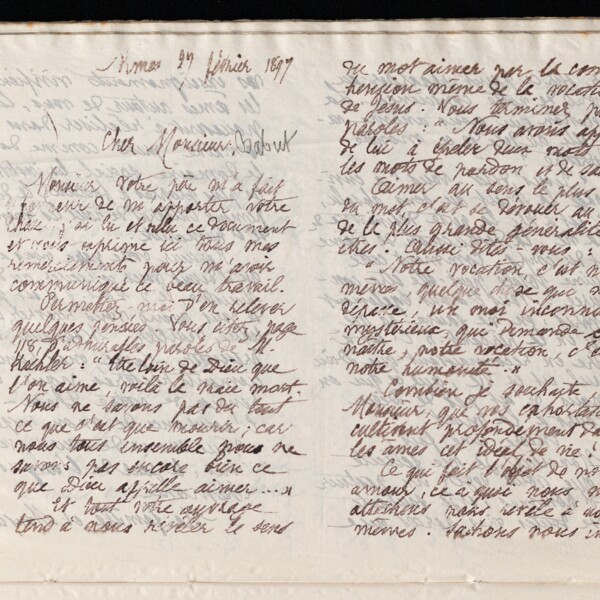 Nîmes 27 février 1897
Cher Monsieur Babut
Monsieur votre père m'a fait
l'honneur de m'apporter votre
thèse, j'ai lu et relu ce document
et vous exprime ici tous mes
remerciements pour m'avoir
communiqué ce beau travail.
Permettez-moi d'en relever
quelques pensées. Vous citez, page
118, d'admirables paroles de M.
"Etre loin de Dieu que
l'on aime, voilà la vraie mort.
Nous ne savons pas du tout
ce que c'est que mourir; car
nous tous ensemble nous ne
savons pas encore bien ce
que Dieu appelle aimer...."
Et tout votre ouvrage
tend à nous révéler le sens
du mot aimer par la com
hension même de la vocati
de Jésus. Vous terminez p
paroles: "Nous avons app
de lui à épeler deux mots
les mots de pardon et de sa
Aimer au sens le plus
du mot, c'est se dévouer au
de la plus grande généralité
êtres. Aussi dites-vous:
"Notre vocation, c'est n
mêmes, quelque chose qui n
dépasse, un moi inconnu
mystérieux, qui demande
naître, notre vocation, c'e
notre humanité."
Combien je souhaite
Monsieur, que vos exhortati
cultivent profondément da
les âmes cet idéal de vie!
Ce qui fait l'objet de no
amour, ce à quoi nous n
attachons nous révèle à no
mêmes. Sachons nous